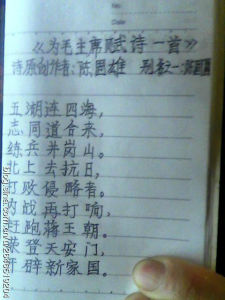 No:
Date
《为毛主席赋诗一首》
诗原创作者:陈国雄
五湖连四海，
志同道合来，
练兵井岗山。
北上去抗日，
打败侵略者。
内战再打响，
赶跑蒋王朝。
荣登天安门，
开辟新家国。